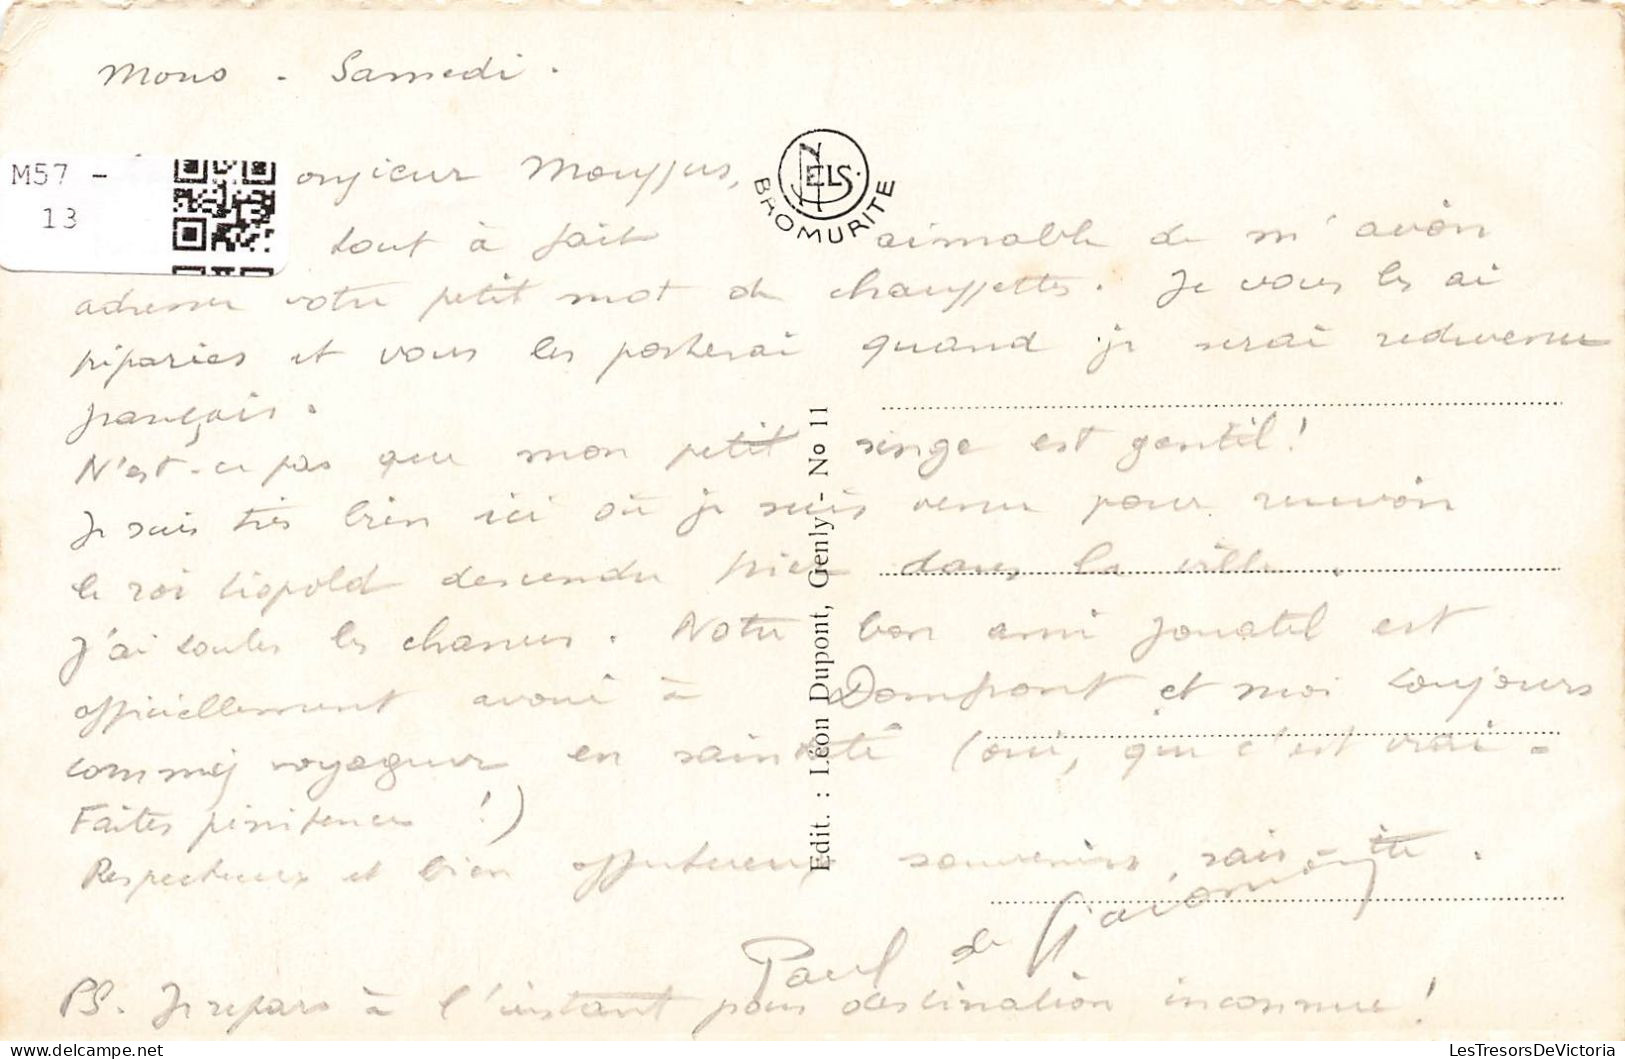 Mons - Samedi.
M57 -
13
onsieur Mouffus,
NELS
BROMURITE
tout à fait aimable de m'avoir
adresser votre petit mot de chaussettes. Je vous les ai
et vous les porterai quand je serai redevenu
français.
N'est-ce pas que mon petit singe est gentil!
Je suis très bien ici où je suis venu pour recevoir
le roi Léopold descendu hier dans la ville.
J'ai toutes les chances. Notre bon ami est
officiellement avoué à Domfront et moi toujours
voyageur en sainteté (oui, que c'est vrai -
Faites pénitence !)
Respectueux et bien affectueux souvenirs,
Paul de
PS. Je repars à l'instant pour destination inconnue!
Edit. : Léon Dupont, Genly - No 11
LesTresorsDeVictoria